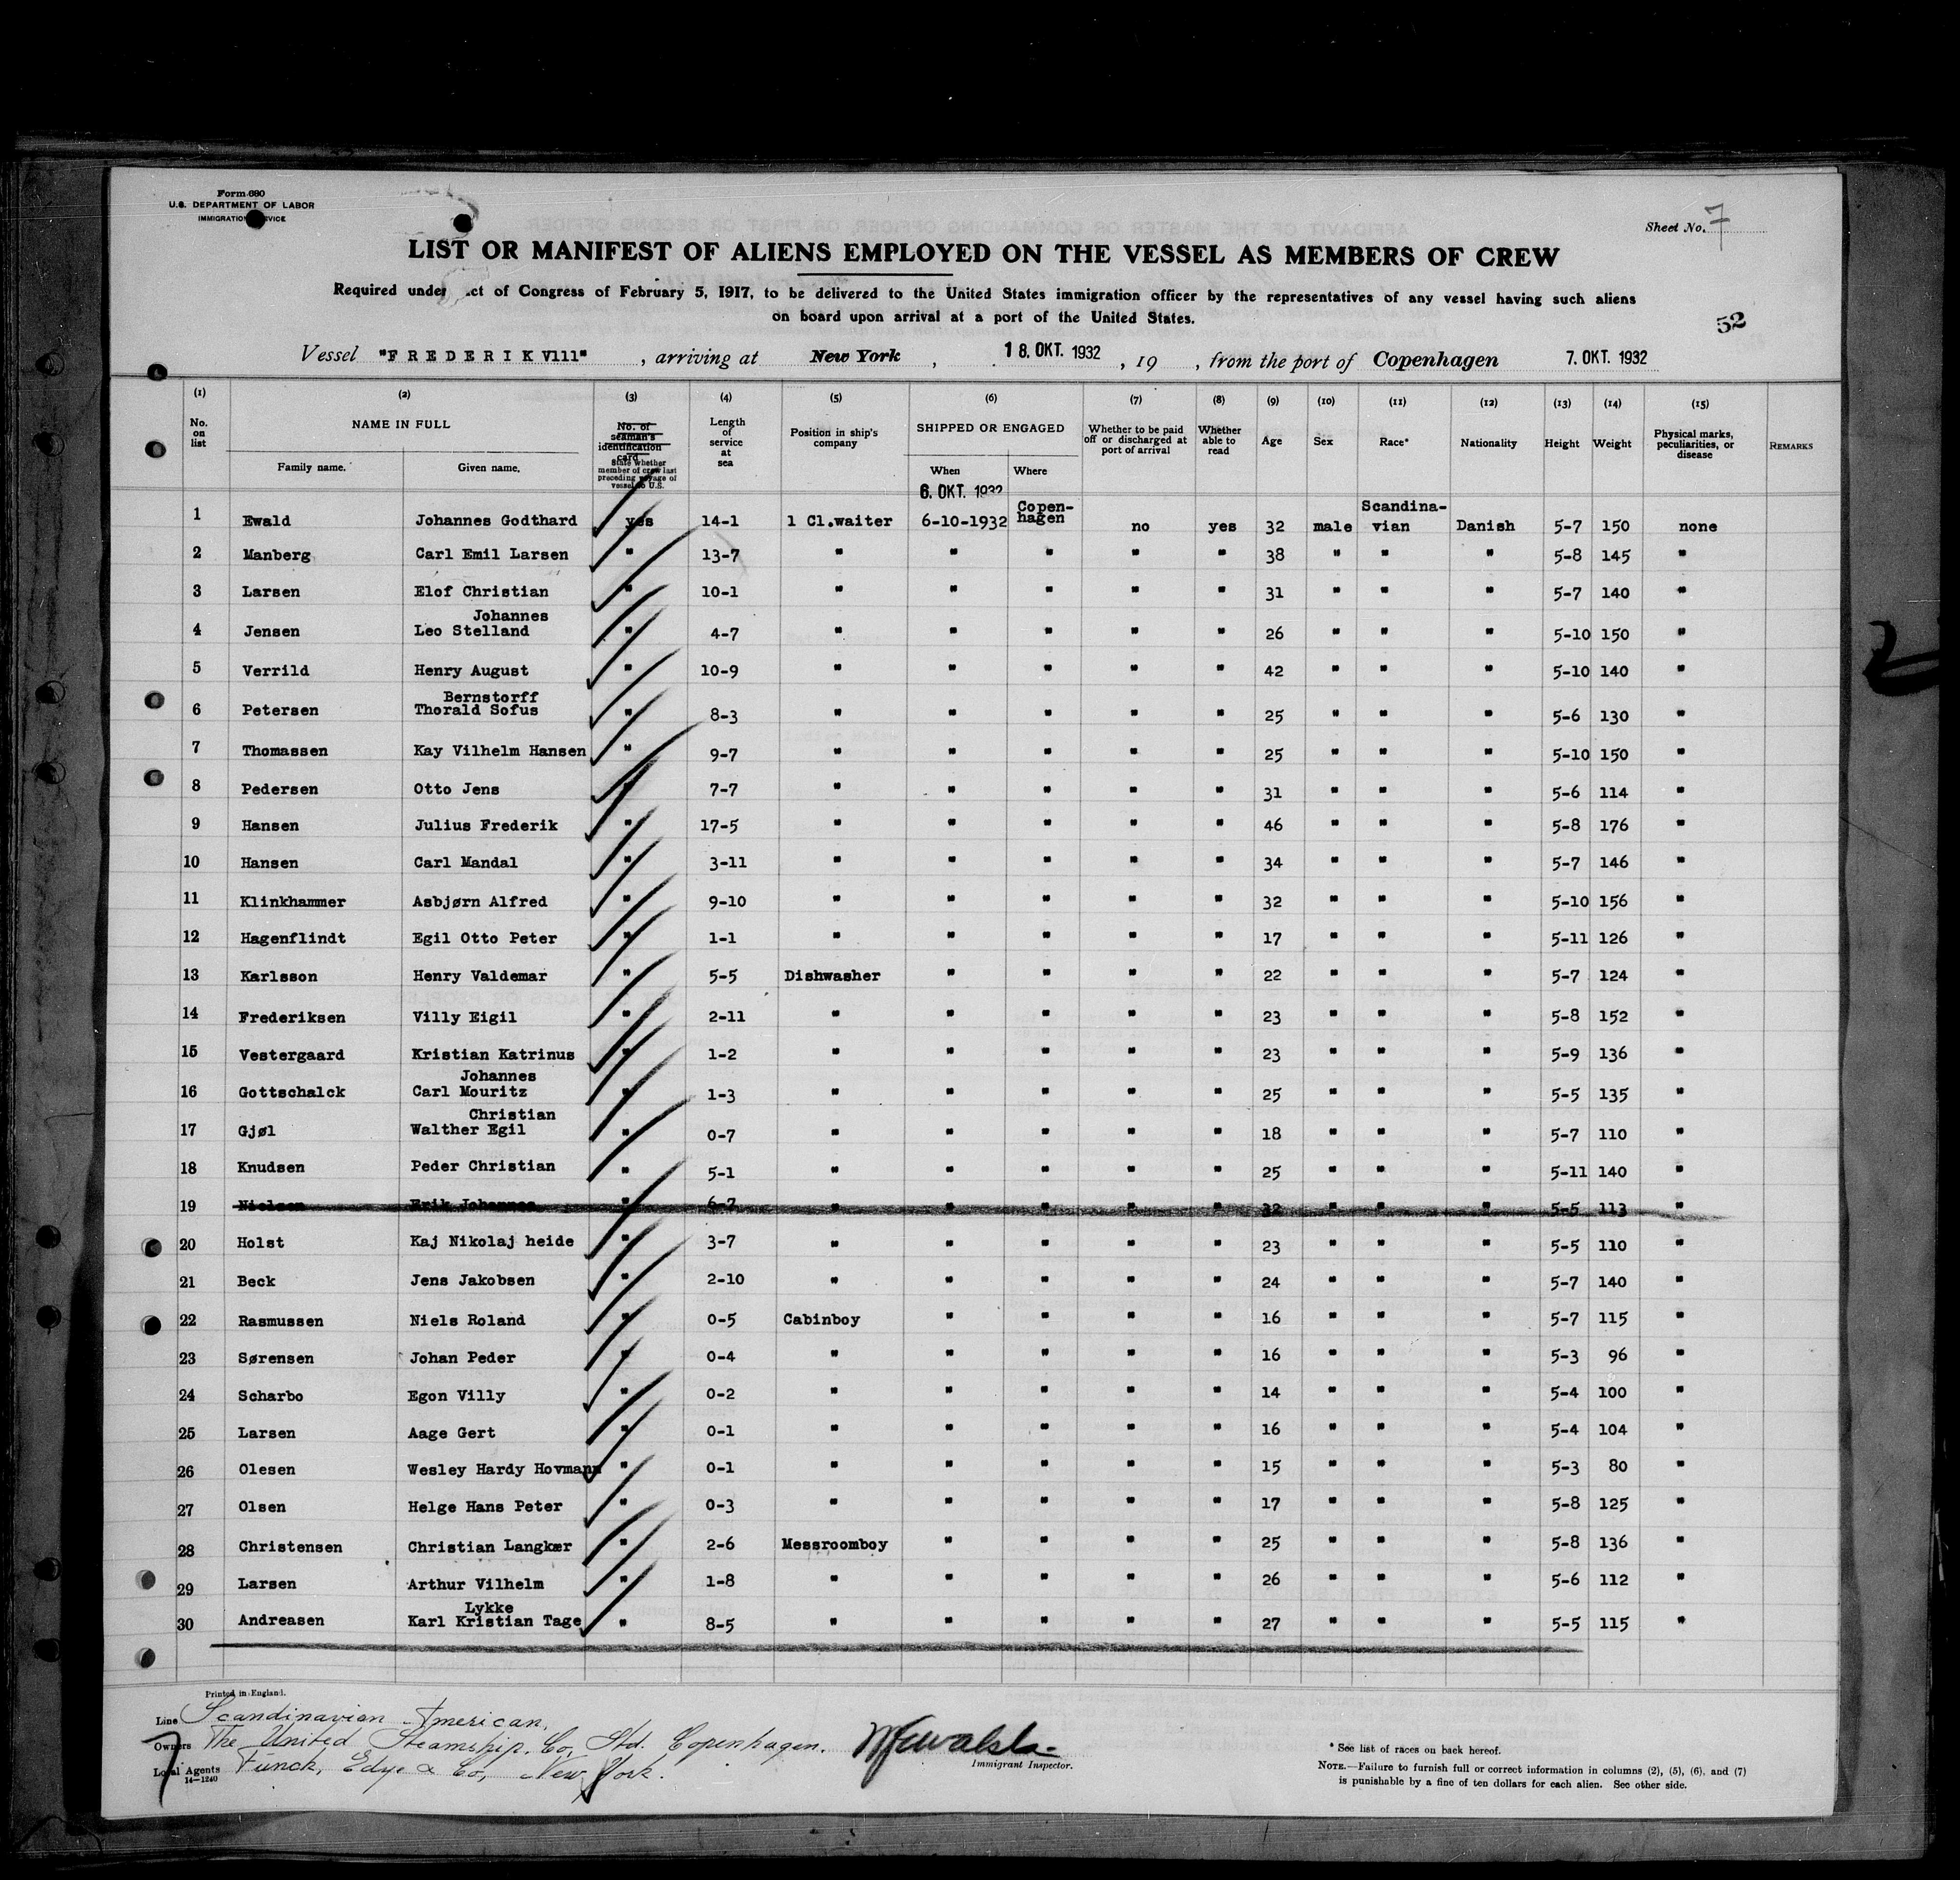 Form 680
U.S. DEPARTMENT OF LABOR
IMMIGRATION SERVICE
Sheet No. 7
LIST OR MANIFEST OF ALIENS EMPLOYED ON THE VESSEL AS MEMBERS OF CREW
Required under Act of Congress of February 5, 1917, to be delivered to the United States immigration officer by the representatives of any vessel having such aliens
on board upon arrival at a port of the United States.
52
Vessel "F R E D E R I K V111" , arriving at New York , 18. OKT. 1932 , 19 , from the port of Copenhagen 7. OKT. 1932
(1) (2) (3) (4) (5) (6) (7) (8) (9) (10) (11) (12) (13) (14) (15)
No. on list NAME IN FULL Family name. Given name. No. of seaman's identification card State whether member of crew last preceding voyage of vessel to U.S. Length of service at sea Position in ship's company SHIPPED OR ENGAGED When Where Whether to be paid off or discharged at port of arrival Whether able to read Age Sex Race* Nationality Height Weight Physical marks, peculiarities, or disease REMARKS
6. OKT. 1932
1 Ewald Johannes Godthard yes 14-1 1 Cl.waiter 6-10-1932 Copen-hagen no yes 32 male Scandina-vian Danish 5-7 150 none
2 Manberg Carl Emil Larsen " 13-7 " " " " " 38 " " " 5-8 145 "
3 Larsen Elof Christian " 10-1 " " " " " 31 " " " 5-7 140 "
Johannes
4 Jensen Leo Stelland " 4-7 " " " " " 26 " " " 5-10 150 "
5 Verrild Henry August " 10-9 " " " " " 42 " " " 5-10 140 "
Bernstorff
6 Petersen Thorald Sofus " 8-3 " " " " " 25 " " " 5-6 130 "
7 Thomassen Kay Vilhelm Hansen " 9-7 " " " " " 25 " " " 5-10 150 "
8 Pedersen Otto Jens " 7-7 " " " " " 31 " " " 5-6 114 "
9 Hansen Julius Frederik " 17-5 " " " " " 46 " " " 5-8 176 "
10 Hansen Carl Mandal " 3-11 " " " " " 34 " " " 5-7 146 "
11 Klinkhammer Asbjørn Alfred " 9-10 " " " " " 32 " " " 5-10 156 "
12 Hagenflindt Egil Otto Peter " 1-1 " " " " " 17 " " " 5-11 126 "
13 Karlsson Henry Valdemar " 5-5 Dishwasher " " " " 22 " " " 5-7 124 "
14 Frederiksen Villy Eigil " 2-11 " " " " " 23 " " " 5-8 152 "
15 Vestergaard Kristian Katrinus " 1-2 " " " " " 23 " " " 5-9 136 "
Johannes
16 Gottschalck Carl Mouritz " 1-3 " " " " " 25 " " " 5-5 135 "
Christian
17 Gjøl Walther Egil " 0-7 " " " " " 18 " " " 5-7 110 "
18 Knudsen Peder Christian " 5-1 " " " " " 25 " " " 5-11 140 "
19 Nielsen Erik Johannes " 6-7 " " " " " 32 " " " 5-5 113 "
20 Holst Kaj Nikolaj heide " 3-7 " " " " " 23 " " " 5-5 110 "
21 Beck Jens Jakobsen " 2-10 " " " " " 24 " " " 5-7 140 "
22 Rasmussen Niels Roland " 0-5 Cabinboy " " " " 16 " " " 5-7 115 "
23 Sørensen Johan Peder " 0-4 " " " " " 16 " " " 5-3 96 "
24 Scharbo Egon Villy " 0-2 " " " " " 14 " " " 5-4 100 "
25 Larsen Aage Gert " 0-1 " " " " " 16 " " " 5-4 104 "
26 Olesen Wesley Hardy Hovmann " 0-1 " " " " " 15 " " " 5-3 80 "
27 Olsen Helge Hans Peter " 0-3 " " " " " 17 " " " 5-8 125 "
28 Christensen Christian Langkær " 2-6 Messroomboy " " " " 25 " " " 5-8 136 "
29 Larsen Arthur Vilhelm " 1-8 " " " " " 26 " " " 5-6 112 "
Lykke
30 Andreasen Karl Kristian Tage " 8-5 " " " " " 27 " " " 5-5 115 "
Printed in England.
Line Scandinavian American.
Owners The United Steamship. Co, Ltd. Copenhagen.
Local Agents Funck, Edye & Co, New York.
14-1240
Immigrant Inspector.
* See list of races on back hereof.
NOTE.—Failure to furnish full or correct information in columns (2), (5), (6), and (7)
is punishable by a fine of ten dollars for each alien. See other side.